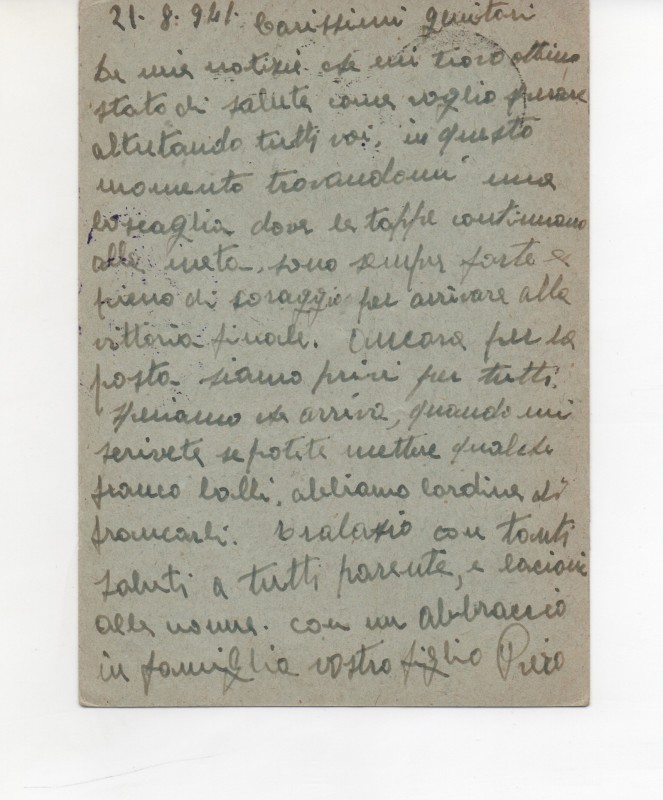 21. 8. 941. Carissimi genitori
le mie notizie che mi trovo ottimo
stato di saluta come voglio sperare
altretando tutti voi, in questo
momento trovandomi una
boscaglia dove le tappe continuano
alla meta, sono sempre forte e
pieno di coraggio per arrivare alla
vittoria finale. Ancora per la
posta siamo privi per tutti.
speriamo che arriva, quando mi
scrivete se potete mettere qualche
franco bolli, abbiamo lordine di
francarli. tralascio con tanti
saluti a tutti parente, e bacioni
alla nonna. con un abbraccio
in famiglia vostro figlio Piero